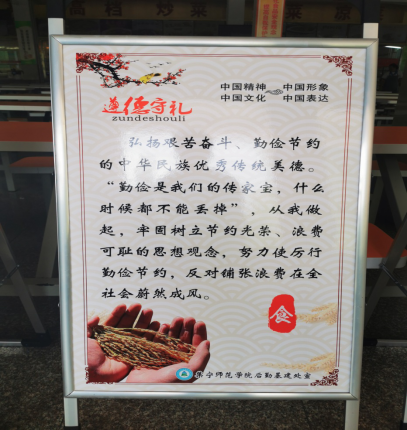 高档炒菜
中国精神 中国形象
中国文化 中国表达
遵德守礼
zundeshouli
弘扬艰苦奋斗、勤俭节约
的中华民族优秀传统美德。
“勤俭是我们的传家宝，什么
时候都不能丢掉”，从我做
起，牢固树立节约光荣、浪费
可耻的思想观念，努力使厉行
勤俭节约，反对铺张浪费在全
社会蔚然成风。
食
师范学院后勤基建处宣